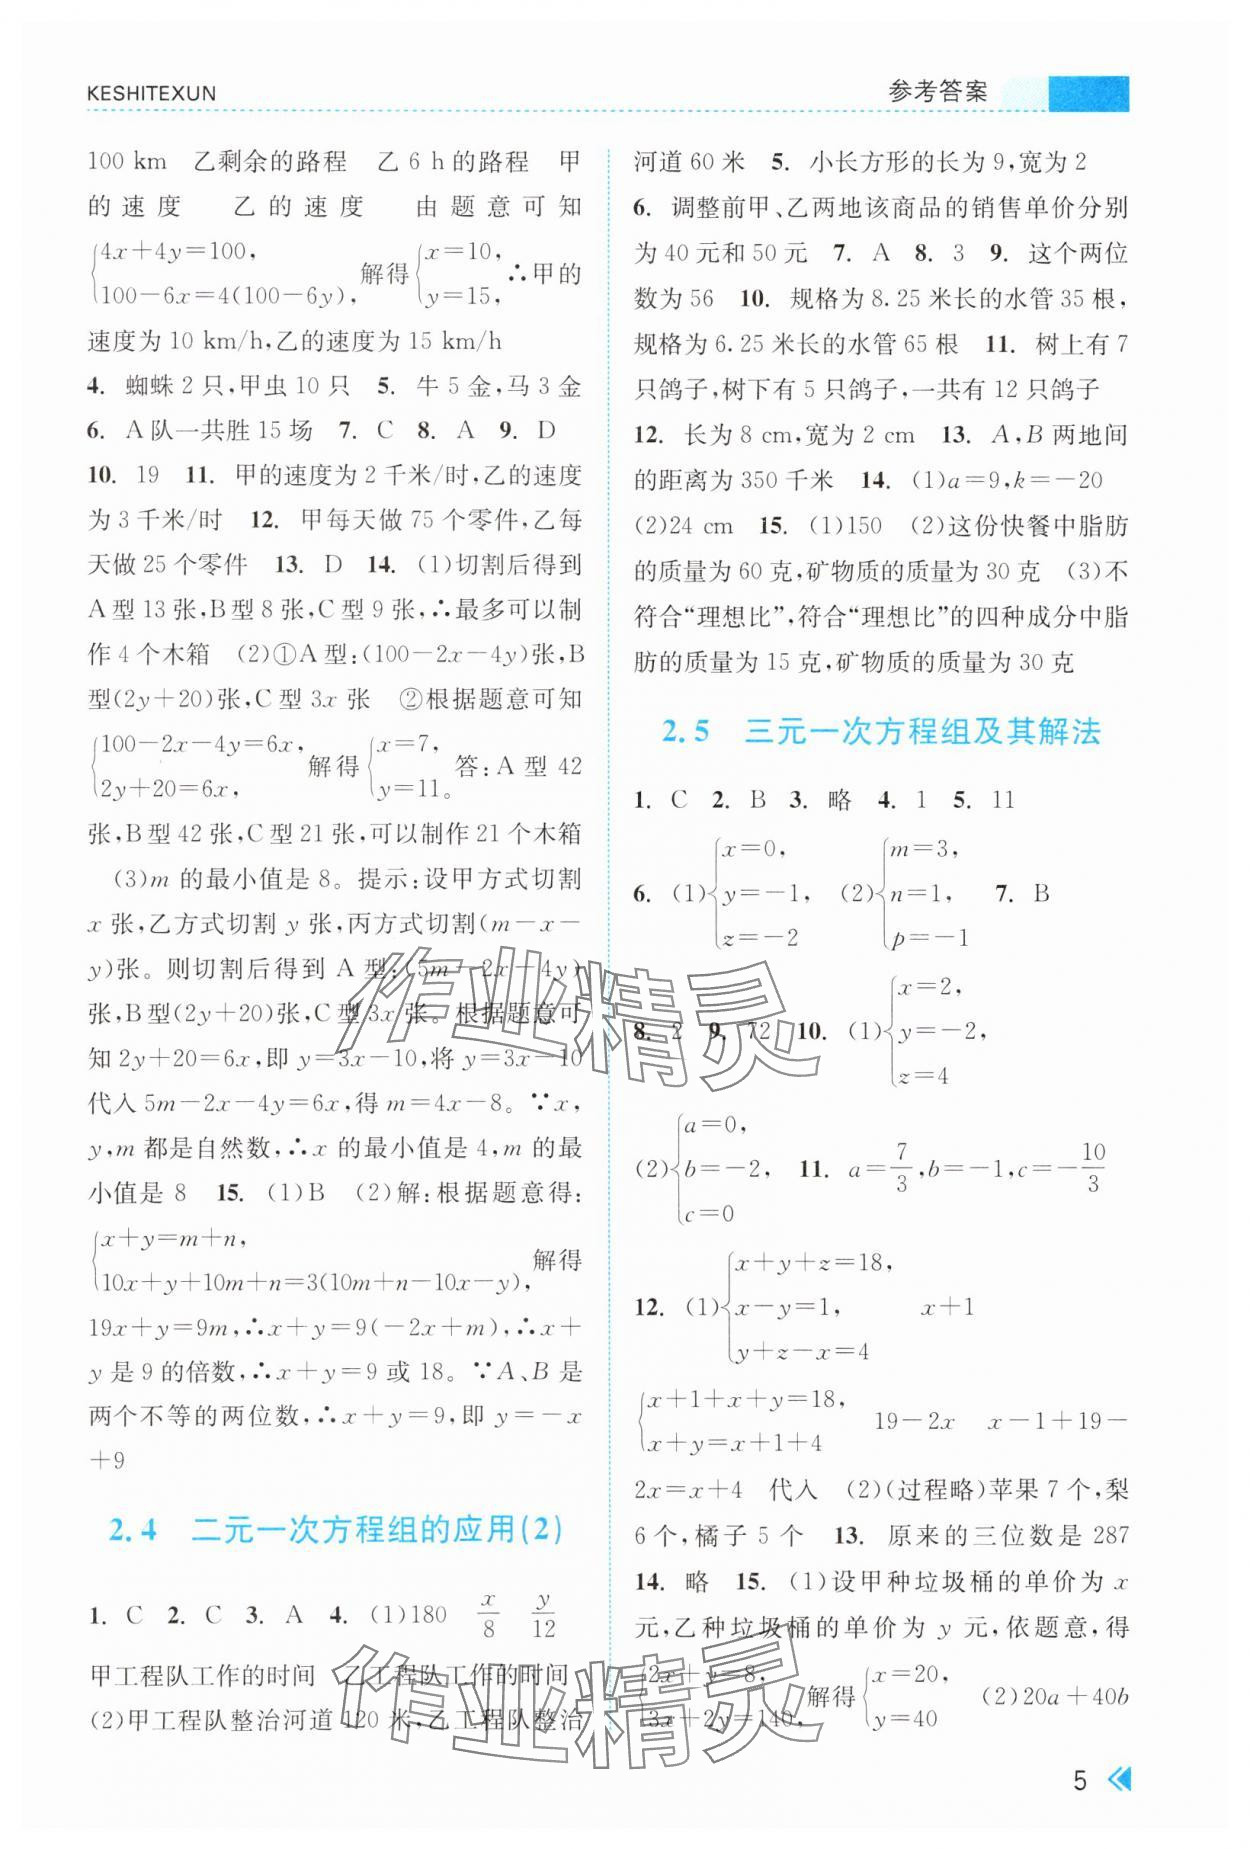 KESHITEXUN
参考答案
100 km 乙剩余的路程 乙 6 h 的路程 甲
的速度 乙的速度 由题意可知
{4x+4y=100, 100-6x=4(100-6y), 解得 {x=10, y=15, ∴甲的
速度为 10 km/h,乙的速度为 15 km/h
4. 蜘蛛 2 只,甲虫 10 只 5. 牛 5 金,马 3 金
6. A 队一共胜 15 场 7. C 8. A 9. D
10. 19 11. 甲的速度为 2 千米/时,乙的速度
为 3 千米/时 12. 甲每天做 75 个零件,乙每
天做 25 个零件 13. D 14. (1)切割后得到
A 型 13 张,B 型 8 张,C 型 9 张,∴最多可以制
作 4 个木箱 (2)①A 型:(100-2x-4y)张,B
型(2y+20)张,C 型 3x 张 ②根据题意可知
{100-2x-4y=6x, 2y+20=6x, 解得 {x=7, y=11。 答:A 型 42
张,B 型 42 张,C 型 21 张,可以制作 21 个木箱
(3)m 的最小值是 8。提示:设甲方式切割
x 张,乙方式切割 y 张,丙方式切割(m-x-
y)张。则切割后得到 A 型:(5m-2x-4y)
张,B 型(2y+20)张,C 型 3x 张。根据题意可
知 2y+20=6x,即 y=3x-10,将 y=3x-10
代入 5m-2x-4y=6x,得 m=4x-8。∵x,
y,m 都是自然数,∴x 的最小值是 4,m 的最
小值是 8 15. (1)B (2)解:根据题意得:
{x+y=m+n, 10x+y+10m+n=3(10m+n-10x-y), 解得
19x+y=9m,∴x+y=9(-2x+m),∴x+
y 是 9 的倍数,∴x+y=9 或 18。∵A、B 是
两个不等的两位数,∴x+y=9,即 y=-x
+9
2.4 二元一次方程组的应用(2)
1. C 2. C 3. A 4. (1)180 x/8 y/12
甲工程队工作的时间 乙工程队工作的时间
(2)甲工程队整治河道 120 米,乙工程队整治
河道 60 米 5. 小长方形的长为 9,宽为 2
6. 调整前甲、乙两地该商品的销售单价分别
为 40 元和 50 元 7. A 8. 3 9. 这个两位
数为 56 10. 规格为 8.25 米长的水管 35 根,
规格为 6.25 米长的水管 65 根 11. 树上有 7
只鸽子,树下有 5 只鸽子,一共有 12 只鸽子
12. 长为 8 cm,宽为 2 cm 13. A,B 两地间
的距离为 350 千米 14. (1)a=9,k=-20
(2)24 cm 15. (1)150 (2)这份快餐中脂肪
的质量为 60 克,矿物质的质量为 30 克 (3)不
符合“理想比”,符合“理想比”的四种成分中脂
肪的质量为 15 克,矿物质的质量为 30 克
2.5 三元一次方程组及其解法
1. C 2. B 3. 略 4. 1 5. 11
6. (1){x=0, y=-1, z=-2 (2){m=3, n=1, p=-1 7. B
8. 2 9. 72 10. (1){x=2, y=-2, z=4
(2){a=0, b=-2, c=0 11. a=7/3,b=-1,c=-10/3
12. (1){x+y+z=18, x-y=1, y+z-x=4 x+1
{x+1+x+y=18, x+y=x+1+4 19-2x x-1+19-
2x=x+4 代入 (2)(过程略)苹果 7 个,梨
6 个,橘子 5 个 13. 原来的三位数是 287
14. 略 15. (1)设甲种垃圾桶的单价为 x
元,乙种垃圾桶的单价为 y 元,依题意,得
{2x+y=8, 3x+2y=140, 解得 {x=20, y=40 (2)20a+40b
5
作业精灵
作业精灵